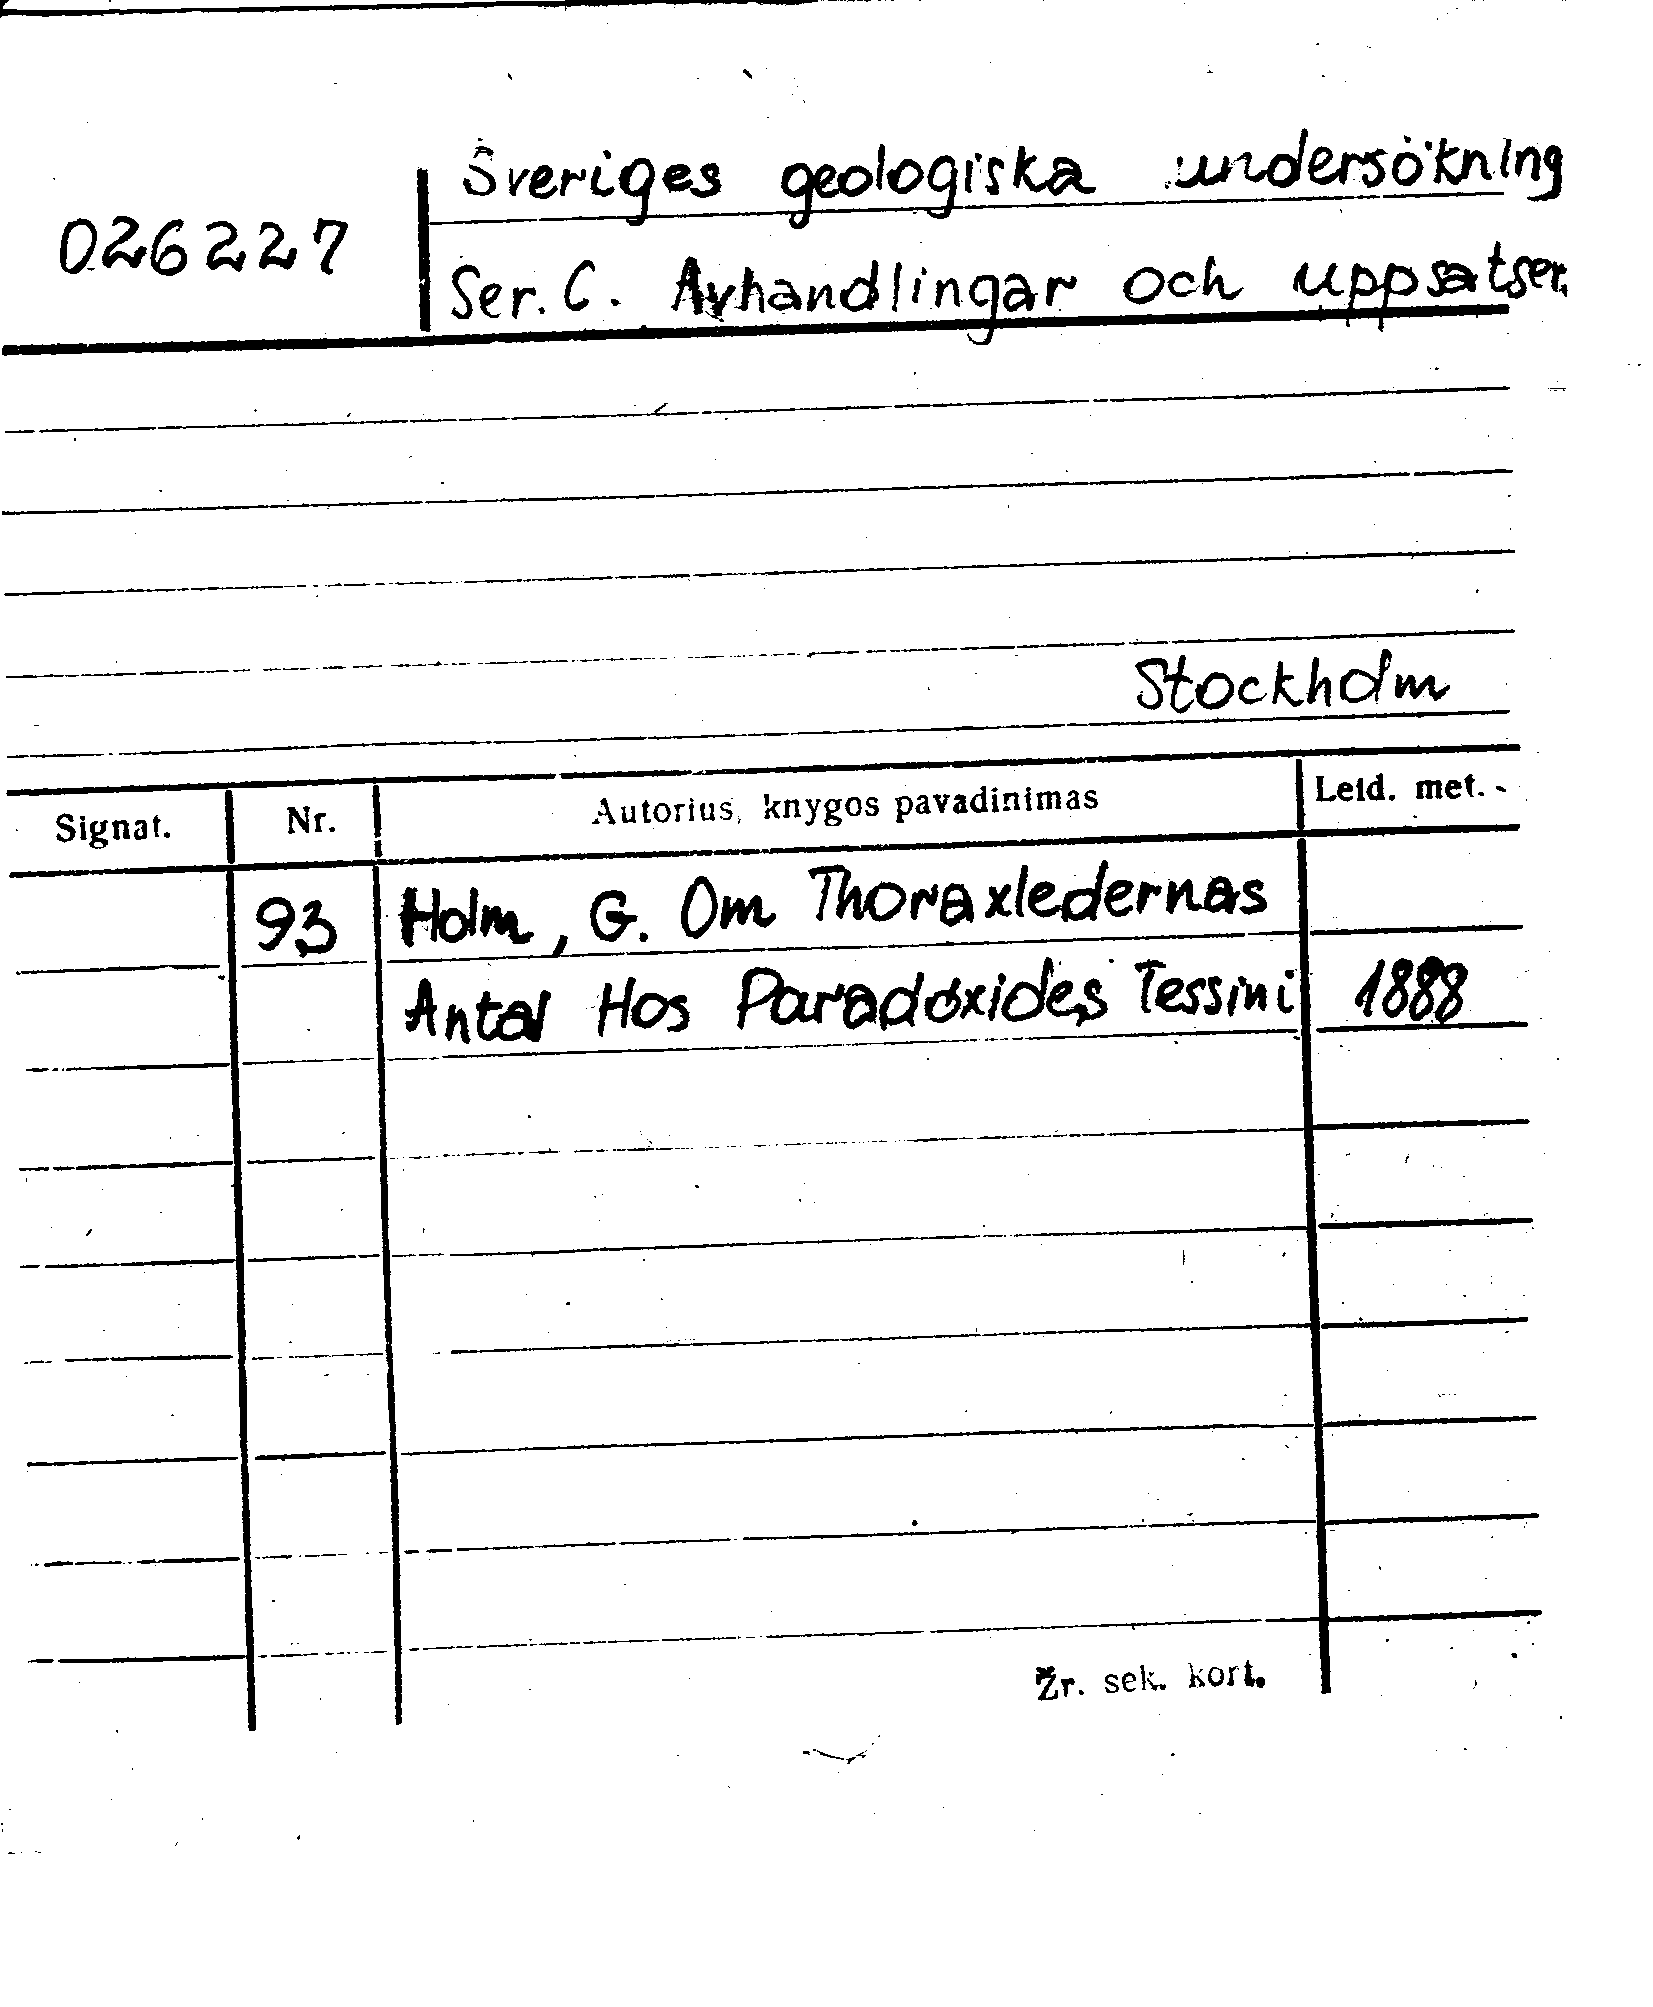 Sveriges geologiska undersökning
026227
Ser. C. Avhandlingar och uppsatser.
Stockholm
Signat. Nr. Autorius, knygos pavadinimas Leid. met.
93 Holm, G. Om Thoraxledernas
Antal Hos Paradoxides Tessini 1888
Žr. sek. kort.